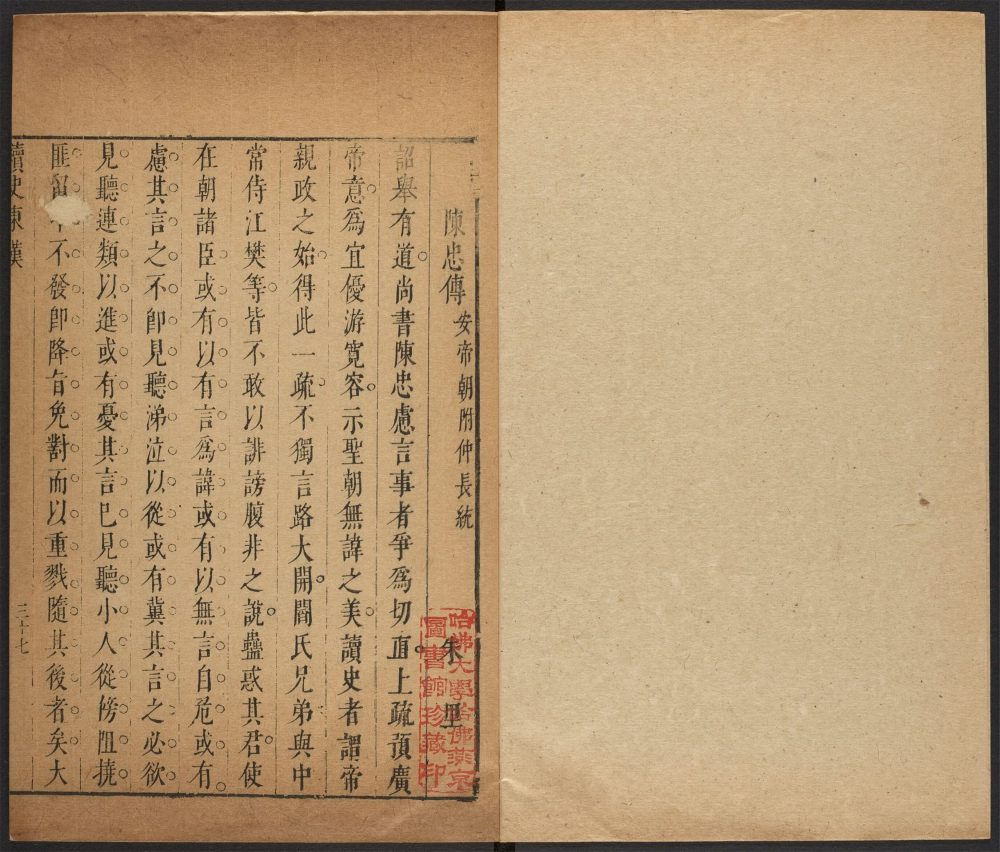 陳忠傳安帝朝附仲長統
朱里
詔舉有道尚書陳忠慮言事者爭爲切直上疏預廣
帝意爲宜優游寬容示聖朝無諱之美讀史者謂帝
親政之始得此一疏不獨言路大開閻氏兄弟與中
常侍江樊等皆不敢以誹謗腹非之說蠱惑其君使
在朝諸臣或有以有言爲諱或有以無言自危或有
慮其言之不卽見聽涕泣以從或有冀其言之必欲
見聽連類以進或有憂其言巳見聽小人從傍阻撓
匪留不發卽降旨免對而以重戮隨其後者矣大
讀史東漢
三十七
哈佛大學哈佛燕京
圖書館珍藏印